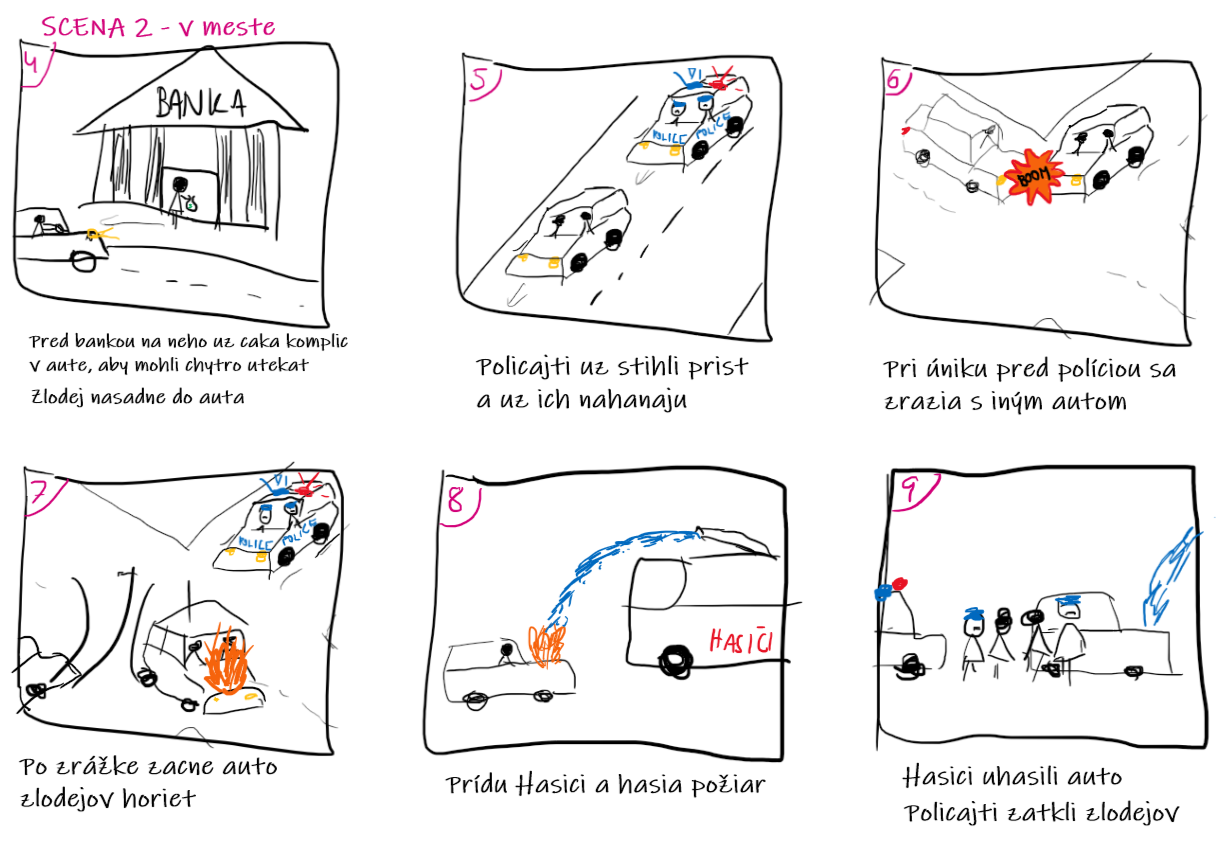 SCENA 2 - v meste
4
BANKA
Pred bankou na neho uz caka komplic
v aute, aby mohli chytro utekat
Zlodej nasadne do auta
5
POLICE POLICE
Policajti uz stihli prist
a uz ich nahanaju
6
BOOM
Pri úniku pred políciou sa
zrazia s iným autom
7
POLICE POLICE
Po zrážke zacne auto
zlodejov horiet
8
HASIČI
Prídu Hasici a hasia požiar
9
Hasici uhasili auto
Policajti zatkli zlodejov